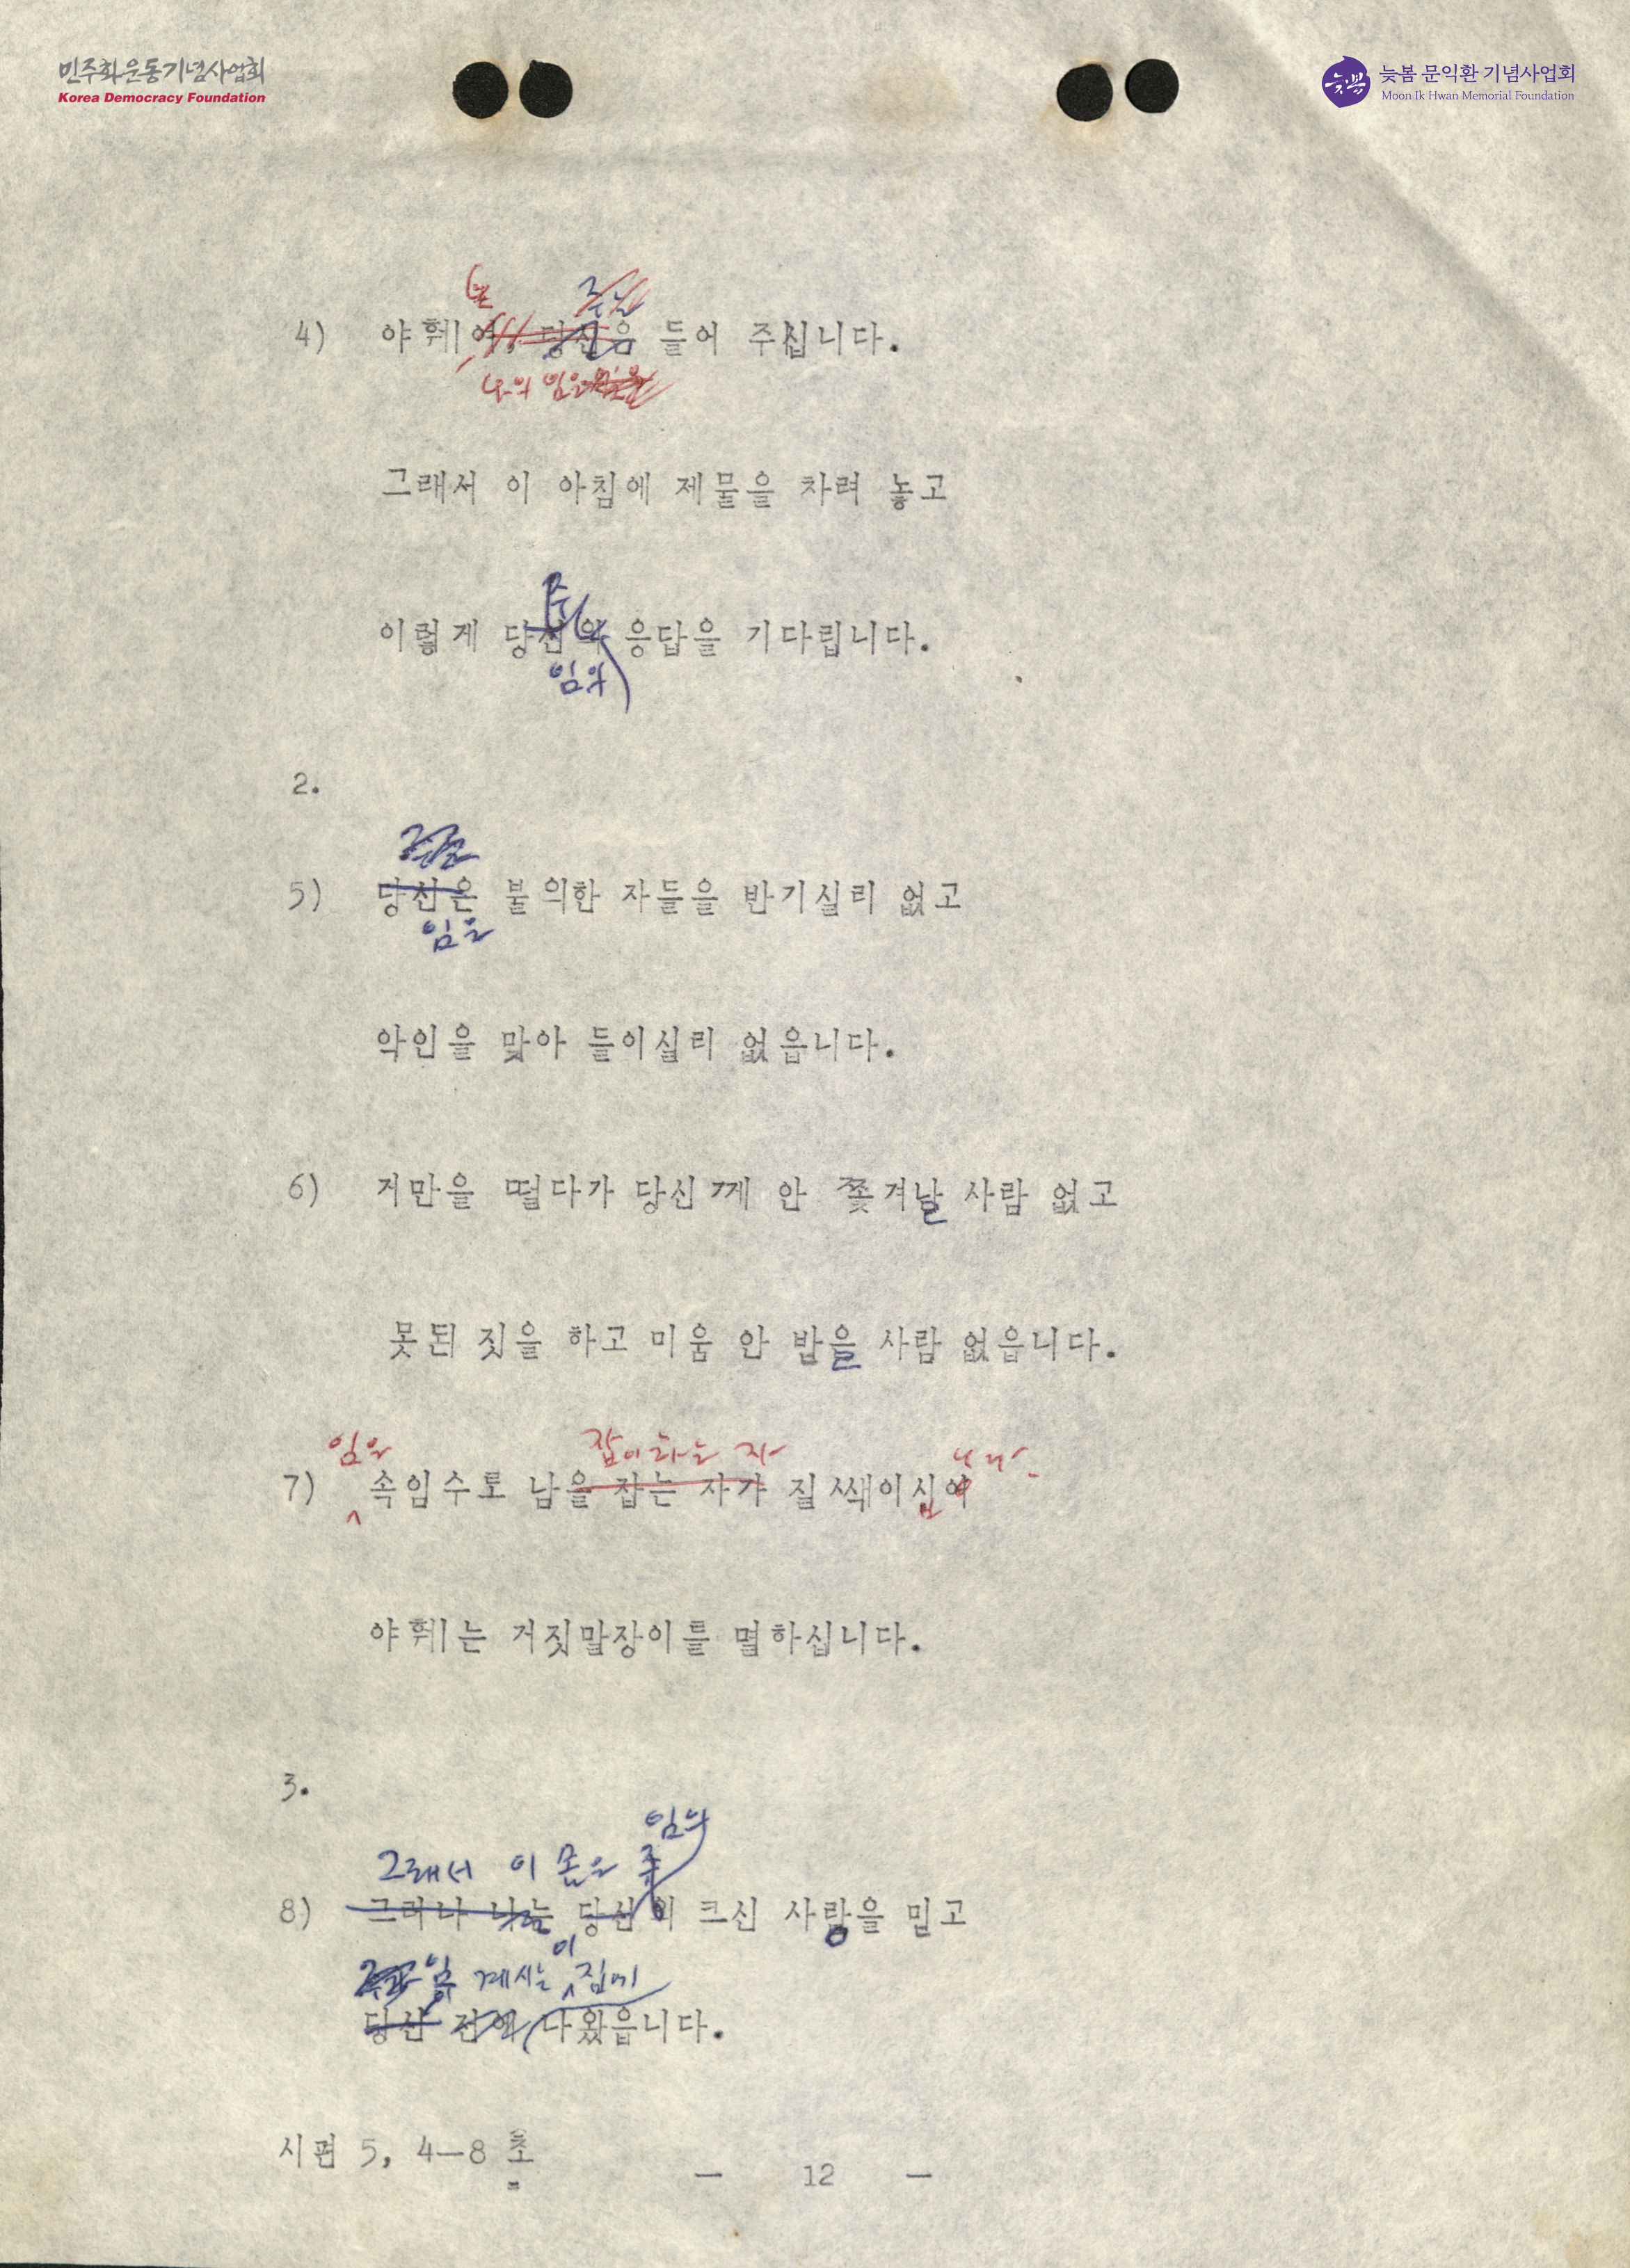 민주화운동기념사업회
Korea Democracy Foundation
늦봄
늦봄 문익환 기념사업회
Moon Ik Hwan Memorial Foundation
주님
4) 야훼여, 당신은 들어 주십니다.
나의 임은
그래서 이 아침에 제물을 차려 놓고
이렇게 당신의 응답을 기다립니다.
임의
2.
5) 당신은 불의한 자들을 반기실리 없고
임은
악인을 맞아 들이실리 없읍니다.
6) 거만을 떨다가 당신께 안 쫓겨날 사람 없고
못된 짓을 하고 미움 안 받을 사람 없읍니다.
임은 잡이하는 자 니다.
7) 속임수로 남을 잡는 자가 질쌕이십여
야훼는 거짓말장이를 멸하십니다.
3.
임의
그래서 이 몸은 주
8) 그러나 나는 당신의 크신 사랑을 믿고
이
임 계시는 집에
당신 전에 나왔읍니다.
시편 5, 4-8 초
- 12 -